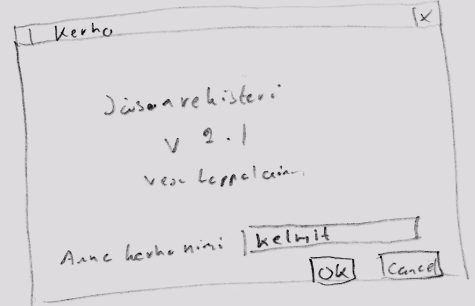 Kerho X
Jäsenrekisteri
V 2.1
Vesa Lappalainen
Anna kerhon nimi kelmit
OK Cancel